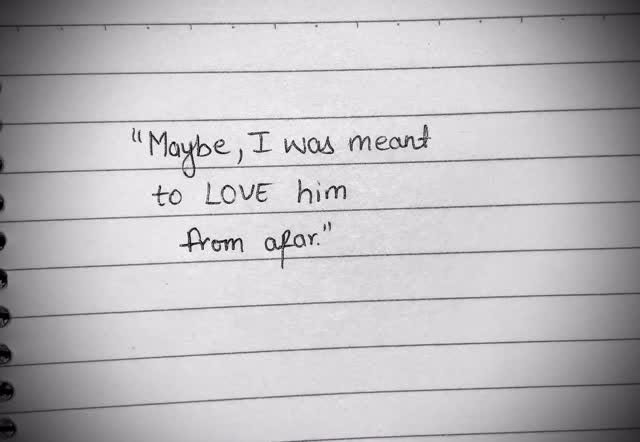 "Maybe, I was meant
to LOVE him
from afar."